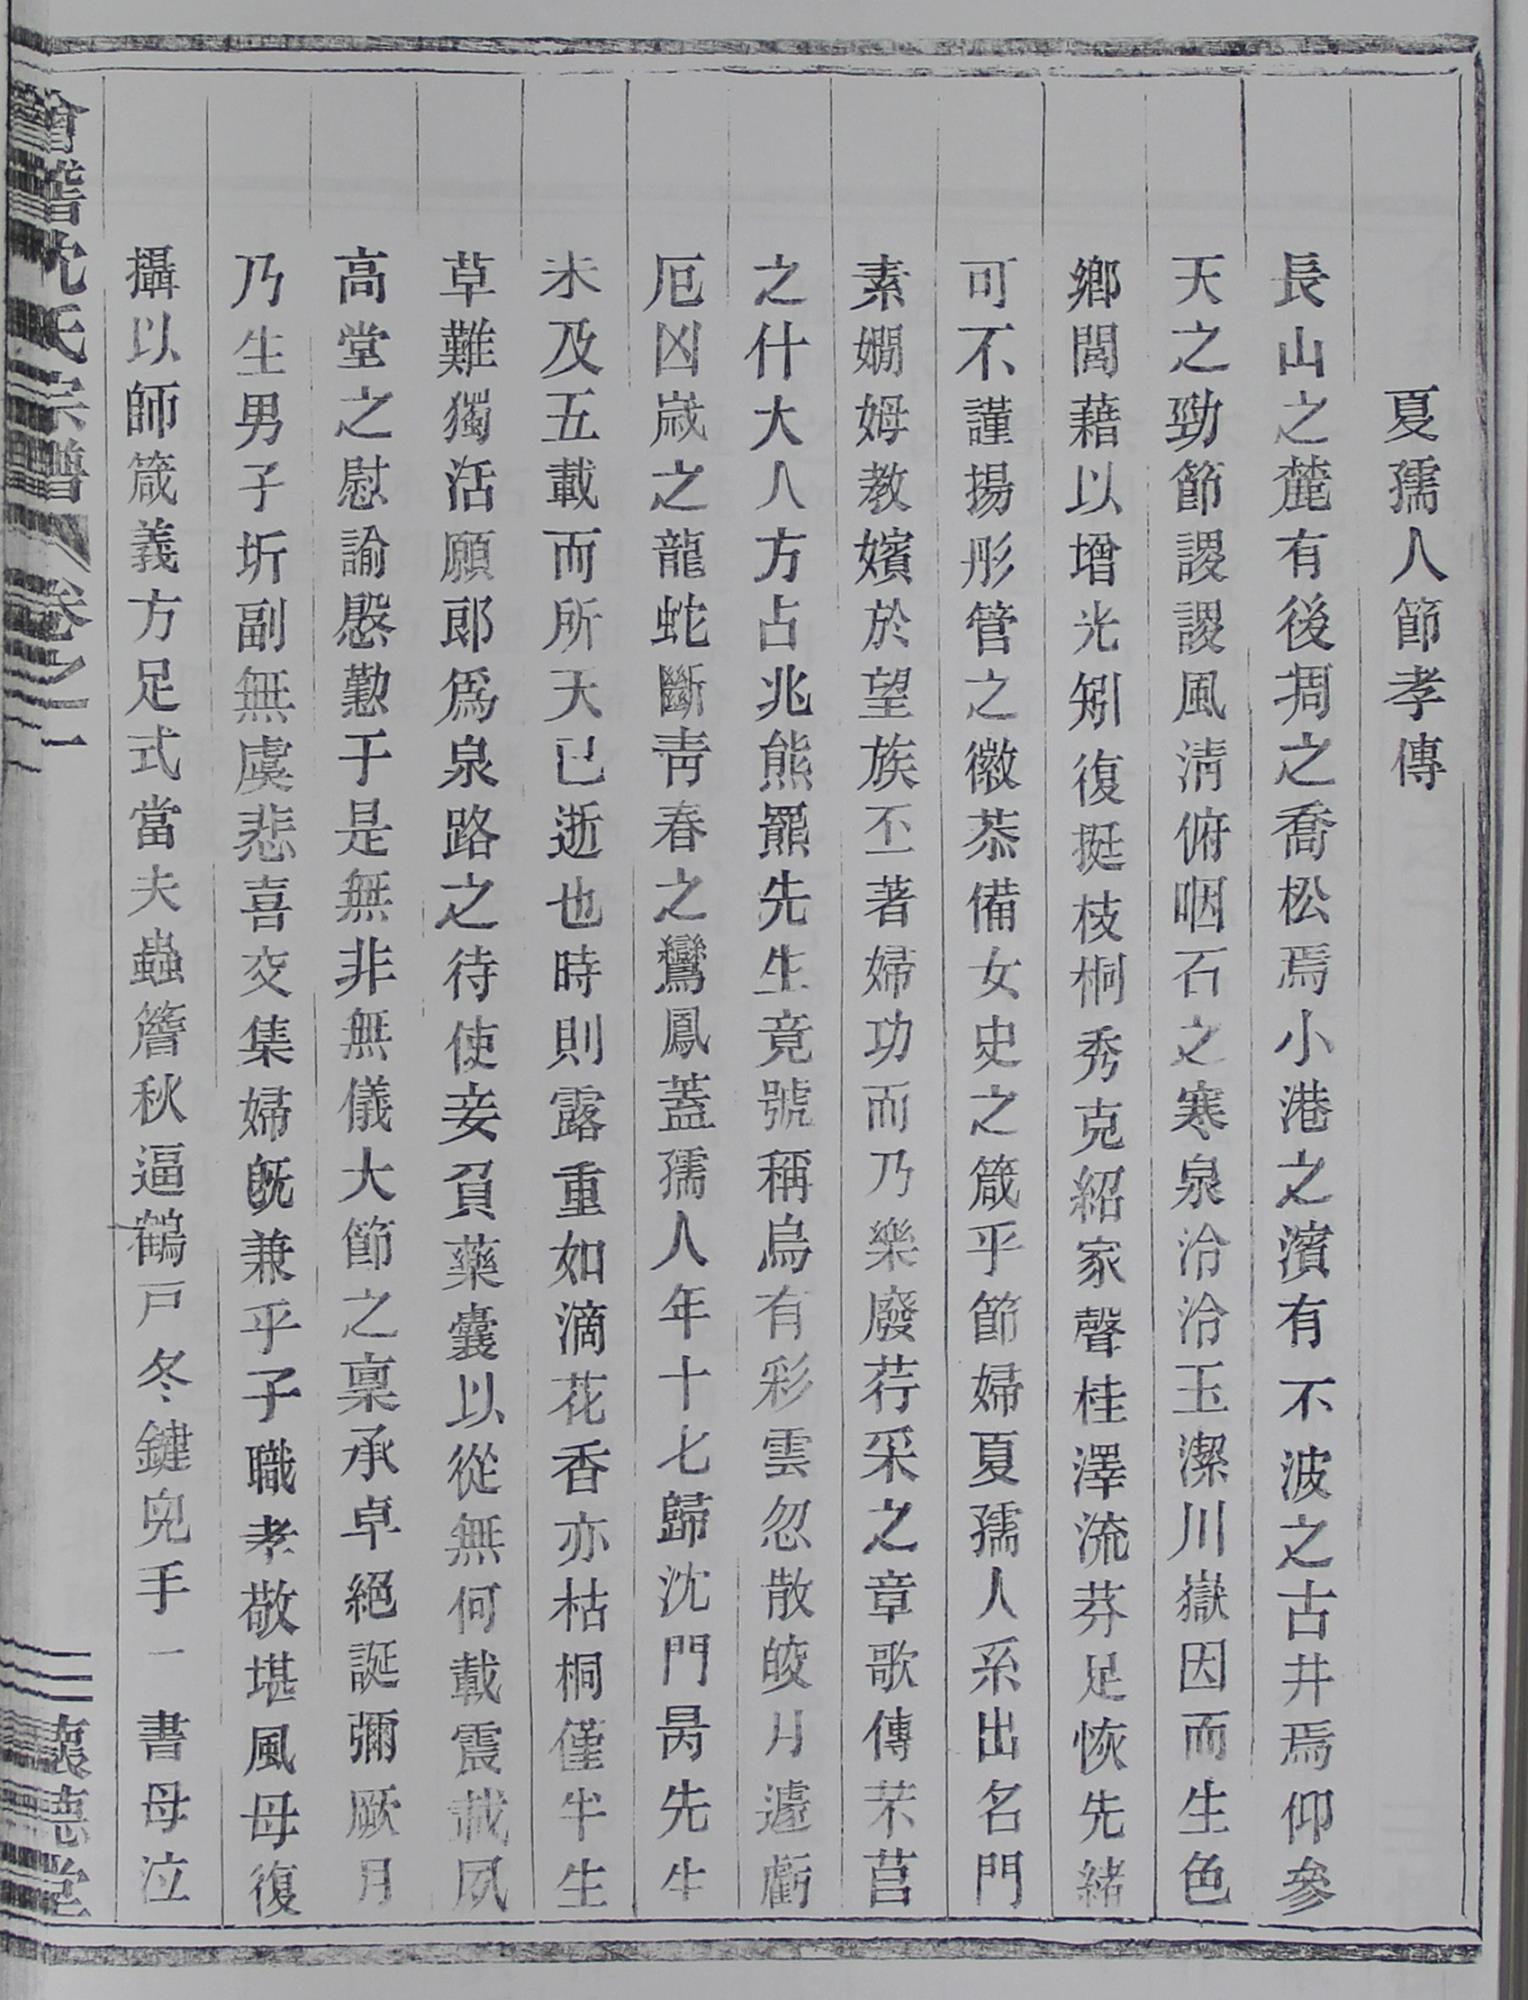 夏孺人節孝傳
長山之麓有後凋之喬松焉小港之濱有不波之古井焉仰參
天之勁節謖謖風清俯咽石之寒泉泠泠玉潔川嶽因而生色
鄉閭藉以增光矧復挺枝桐秀克紹家聲桂澤流芬足恢先緒
可不謹揚彤管之徽恭備女史之箴乎節婦夏孺人系出名門
素嫺姆教嬪於望族丕著婦功而乃樂廢荇采之章歌傳芣苢
之什大人方占兆熊羆先生竟號稱烏有彩雲忽散皎月遽虧
厄凶歲之龍蛇斷青春之鸞鳳蓋孺人年十七歸沈門昺先生
未及五載而所天已逝也時則露重如滴花香亦枯桐僅半生
草難獨活願郎爲泉路之待使妾負藥囊以從無何載震載夙
高堂之慰諭慇懃于是無非無儀大節之稟承卓絕誕彌厥月
乃生男子坼副無虞悲喜交集婦旣兼乎子職孝敬堪風母復
攝以師箴義方足式當夫蟲簷秋逼鶴戸冬鍵兒手一書母泣
會稽沈氏宗譜 卷之一 懷德堂